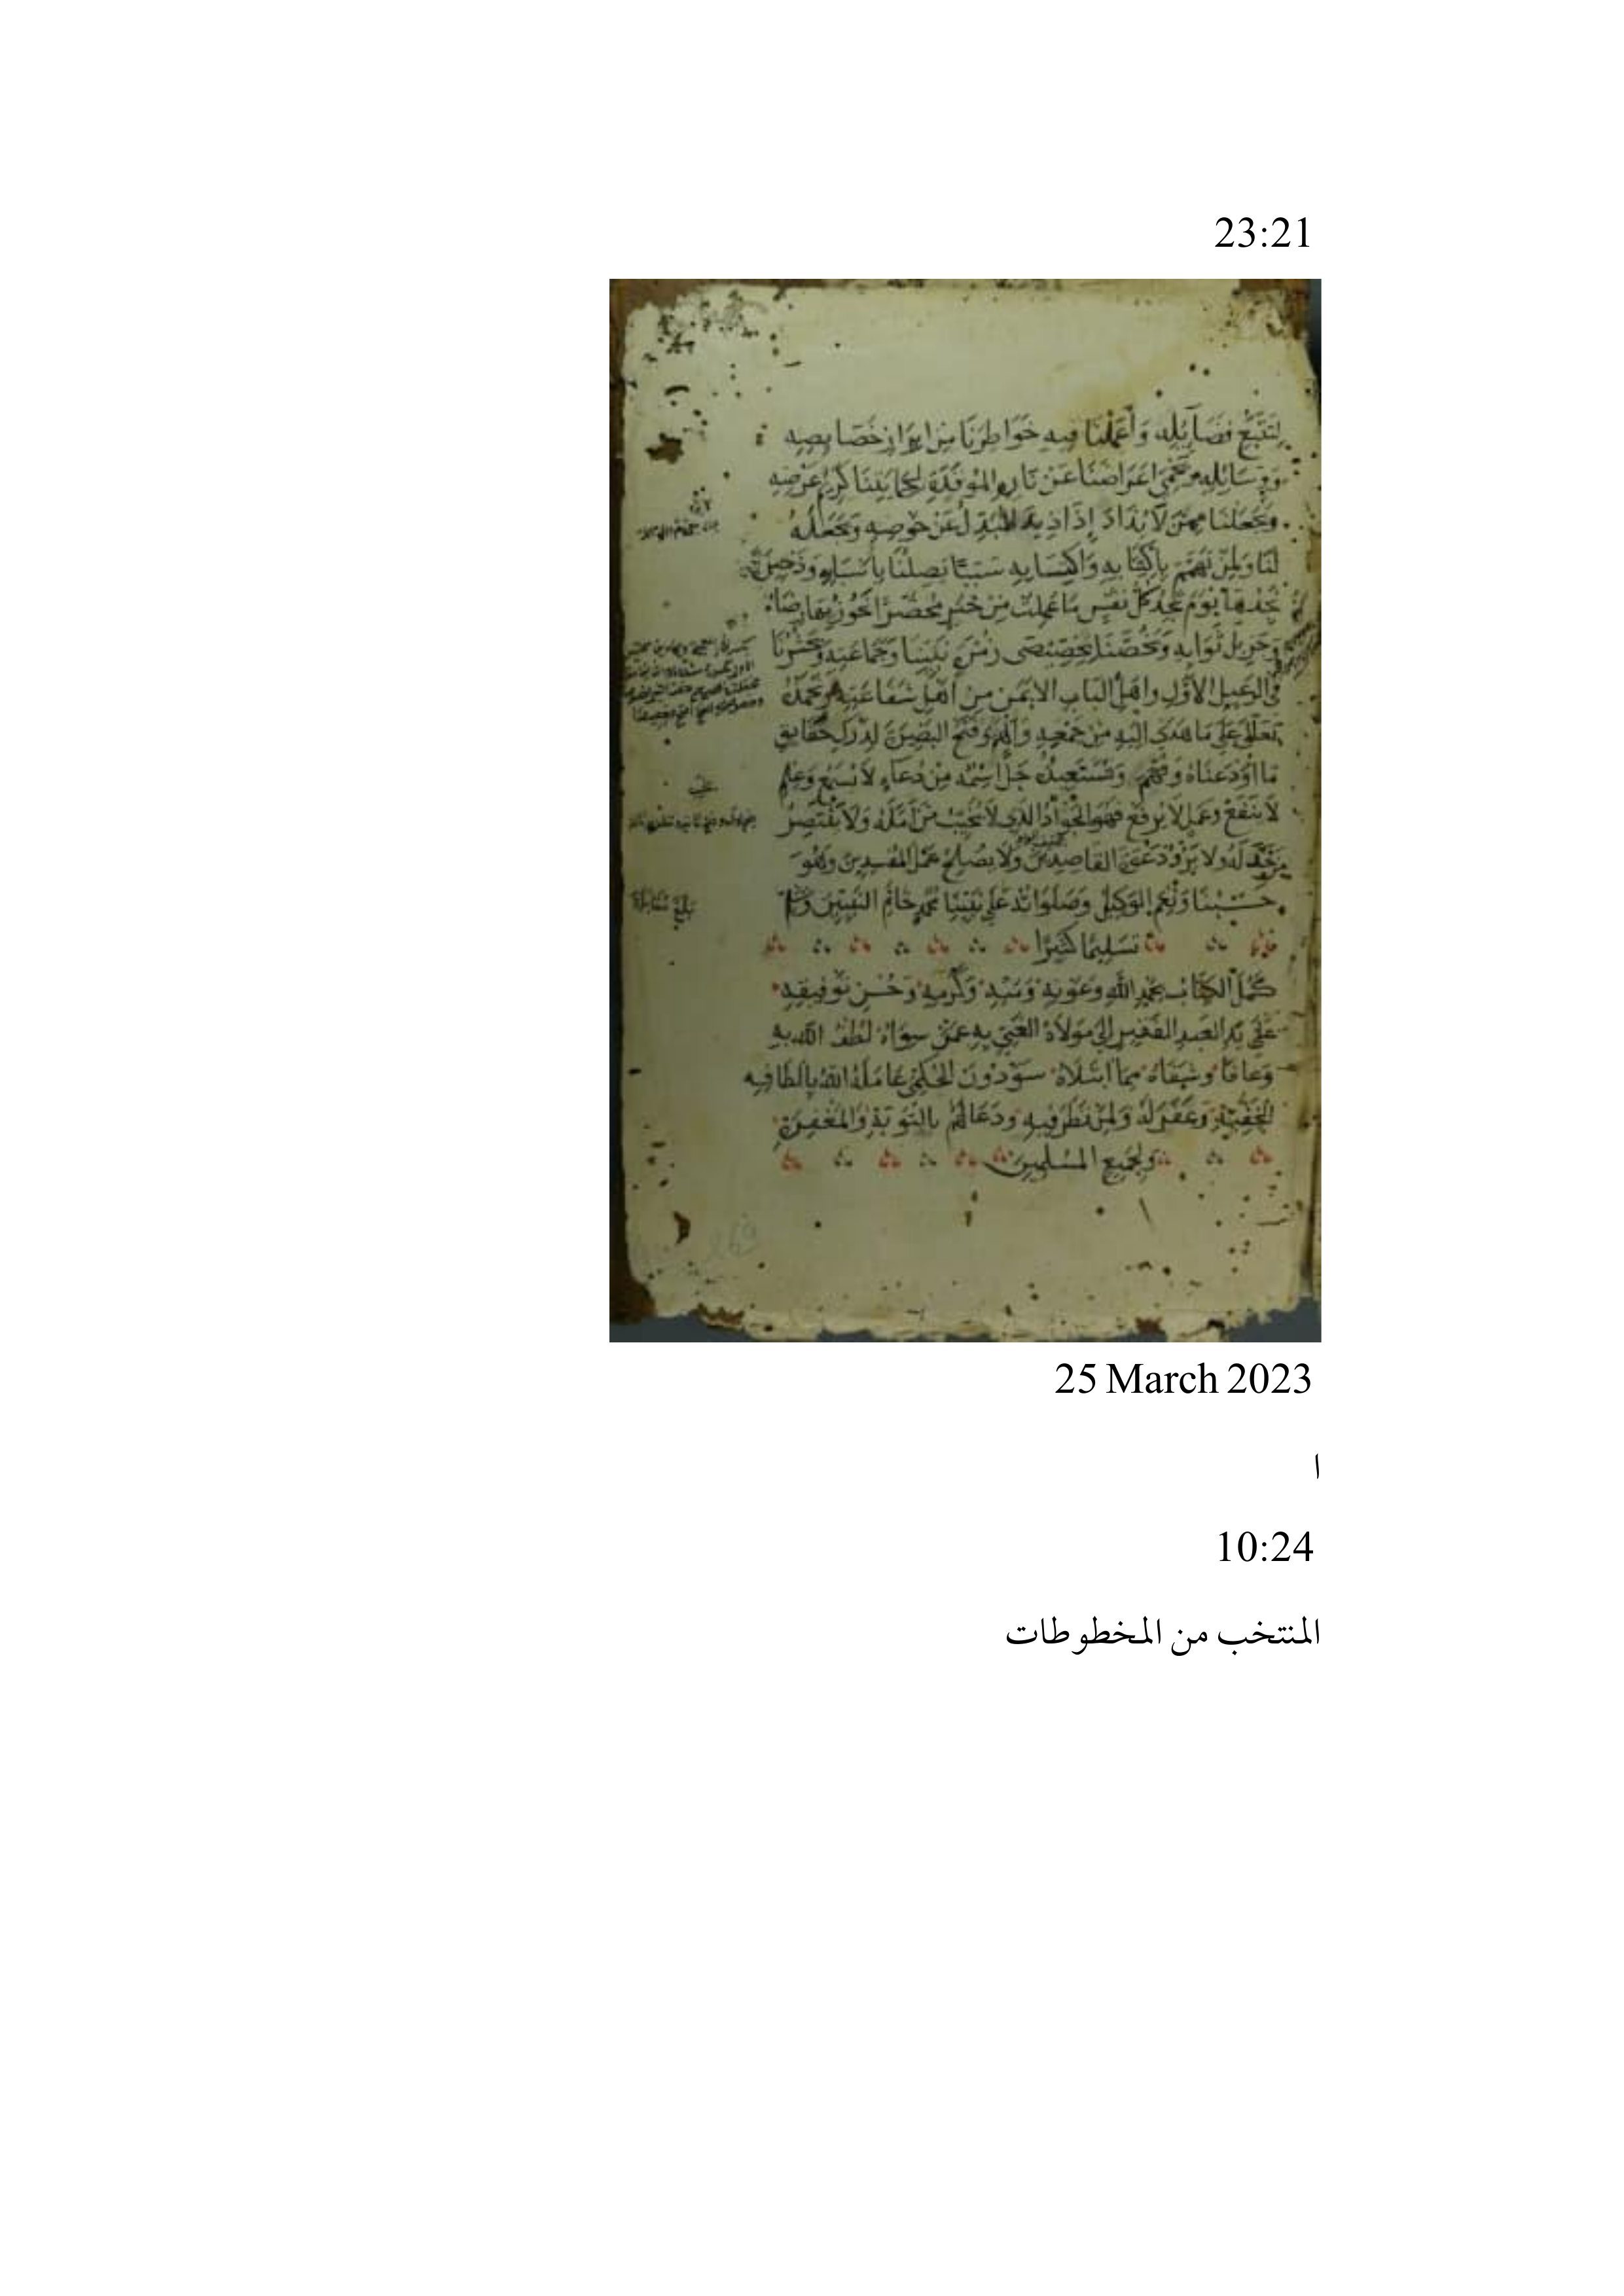 23:21
لِتَتَبُّعِ فَضَائِلِهِ وَأَعْمَلْنَا فِيهِ خَوَاطِرَنَا مِنْ ابرَازِ خَصَايِصِهِ
وَوَسَائِلِهِ وَيَحْمِيَ اعرَاضَنَا عَنْ نَارِهِ المُوقَدَةِ لِحِمَايَتِنَا كَرِيمَ عِرْضِهِ
وَيَجْعَلَنَا مِمَّنْ لَا يُذَادُ إِذَا ذِيدَ المُبَدِّلُ عَنْ حَوضِهِ وَيَجْعَلُهُ
لَنَا وَلِمَنْ تَهَمَّمَ بِاكْتِتَابِهِ وَاكْتِسَابِهِ سَبَبًا يَصِلُنَا بِأَسْبَابِهِ وَذَخِيرَةً
نَجِدُهَا يَوْمَ تَجِدُ كُلُّ نَفْسٍ مَا عَمِلَتْ مِنْ خَيرٍ مُحْضَرًا نَحُوزُ بِهَا رِضَاهُ
وَجَزِيلَ ثَوَابِهِ وَيَخُصَّنَا بِخِصِّيصَى زُمْرَةِ نَبِيِّنَا وَجَمَاعَتِهِ وَيَحْشُرَنَا
فِي الرَعِيلِ الأَوَّلِ وَاهْلِ البَابِ الايْمَنِ مِنْ اهْلِ شَفَاعَتِهِ وَنَحْمَدُهُ
تَعَالَى عَلَى مَا هَدَى الَيْهِ مِنْ جَمْعِهِ وَأَلْهَمَ وَفَتَحَ البَصِيرَةَ لِدَرْكِ حَقَايِقِ
مَا اوْدَعْنَاهُ وَفَهَّمَ وَنَسْتَعِيذُهُ جَلَّ اسْمُهُ مِنْ دُعَاءٍ لَا يُسْمَعُ وَعِلْمٍ
لَا يَنْفَعُ وَعَمَلٍ لَا يُرْفَعُ فَهُوَ الجَوَادُ الَّذِي لَا يُخَيِّبُ مَنْ أَمَّلَهُ وَلَا يَنْتَصِرُ
مَنْ خَذَلَهُ وَلَا يَرُدُّ دَعْوَةَ القَاصِدِينَ وَلَا يُصْلِحُ عَمَلَ المُفْسِدِينَ وَهُوَ
حَسْبُنَا وَنِعْمَ الوَكِيلُ وَصَلَوَاتُهُ عَلَى نَبِيِّنَا مُحَمَّدٍ خَاتَمِ النَّبِيِّينَ وَسَلَّمَ
تَسْلِيمًا كَثِيرًا
كَمُلَ الكِتَابُ بِحَمْدِ اللَّهِ وَعَوْنِهِ وَمَنِّهِ وَكَرَمِهِ وَحُسْنِ تَوْفِيقِهِ
عَلَى يَدِ العَبْدِ الفَقِيرِ إِلَى مَوْلَاهُ الغَنِيِّ بِهِ عَمَّنْ سِوَاهُ لَطَفَ اللَّهُ بِهِ
وَعَافَاهُ وَشَفَاهُ مِمَّا ابْتَلَاهُ سَوْدُونَ الحَكَمِيِّ عَامَلَهُ اللهُ بِالطَافِهِ
الخَفِيَّةِ وَغَفَرَ لَهُ وَلِمَنْ نَظَرَ فِيهِ وَدَعَا لَهُمْ بِالتَّوْبَةِ وَالمَغْفِرَةِ
وَلِجَمِيعِ المُسْلِمِينَ
بلغ مقابلة
25 March 2023
ا
10:24
المنتخب من المخطوطات